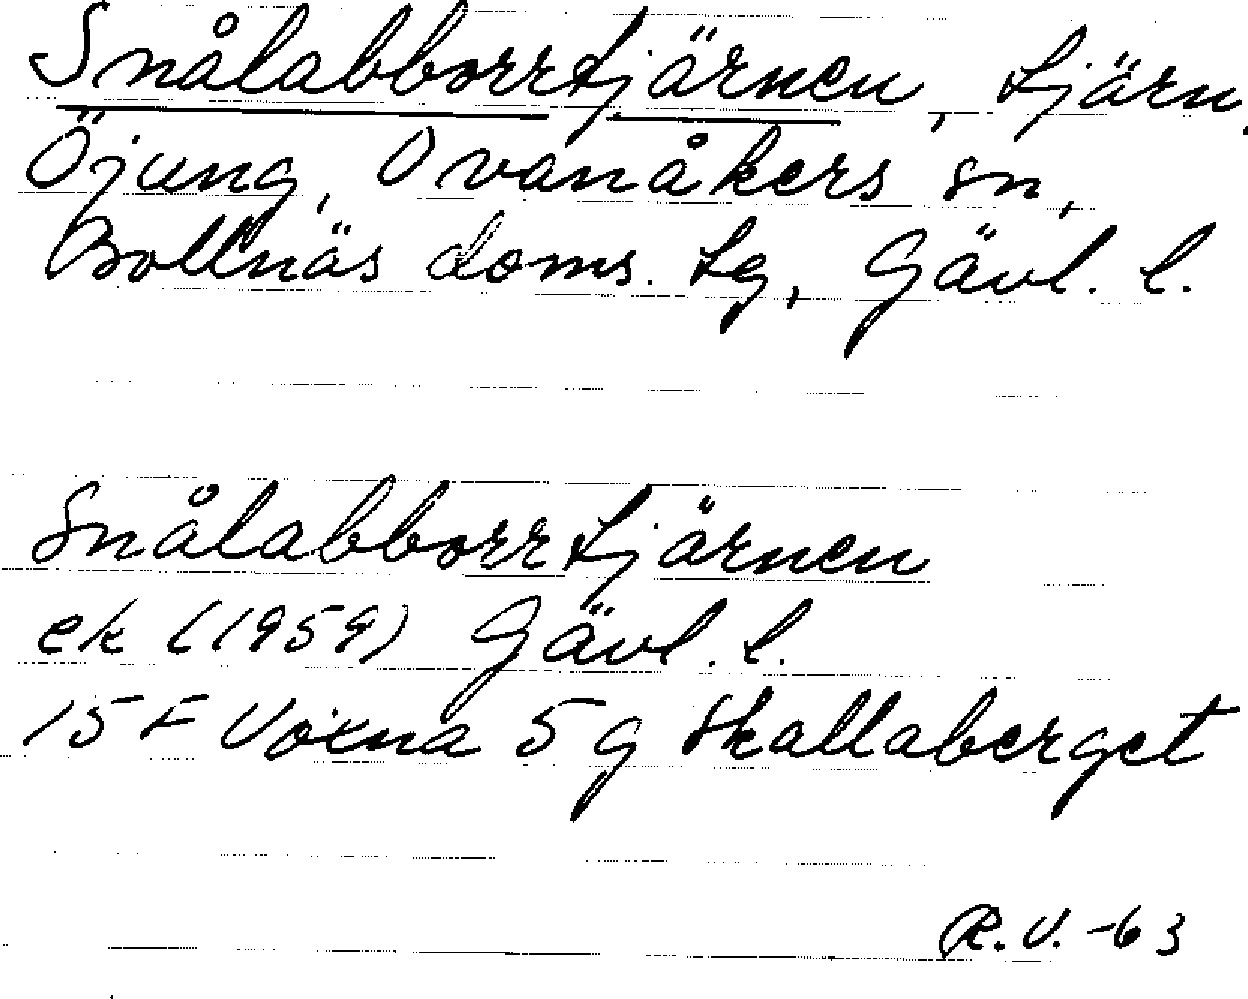 Snålabborrtjärnen, tjärn,
Öjung, Ovanåkers sn,
Bollnäs doms. tg, Gävl. l.
Snålabborrtjärnen
ek (1959) Gävl. l.
15 F Voxna 5 g Skallaberget
R.V. -63